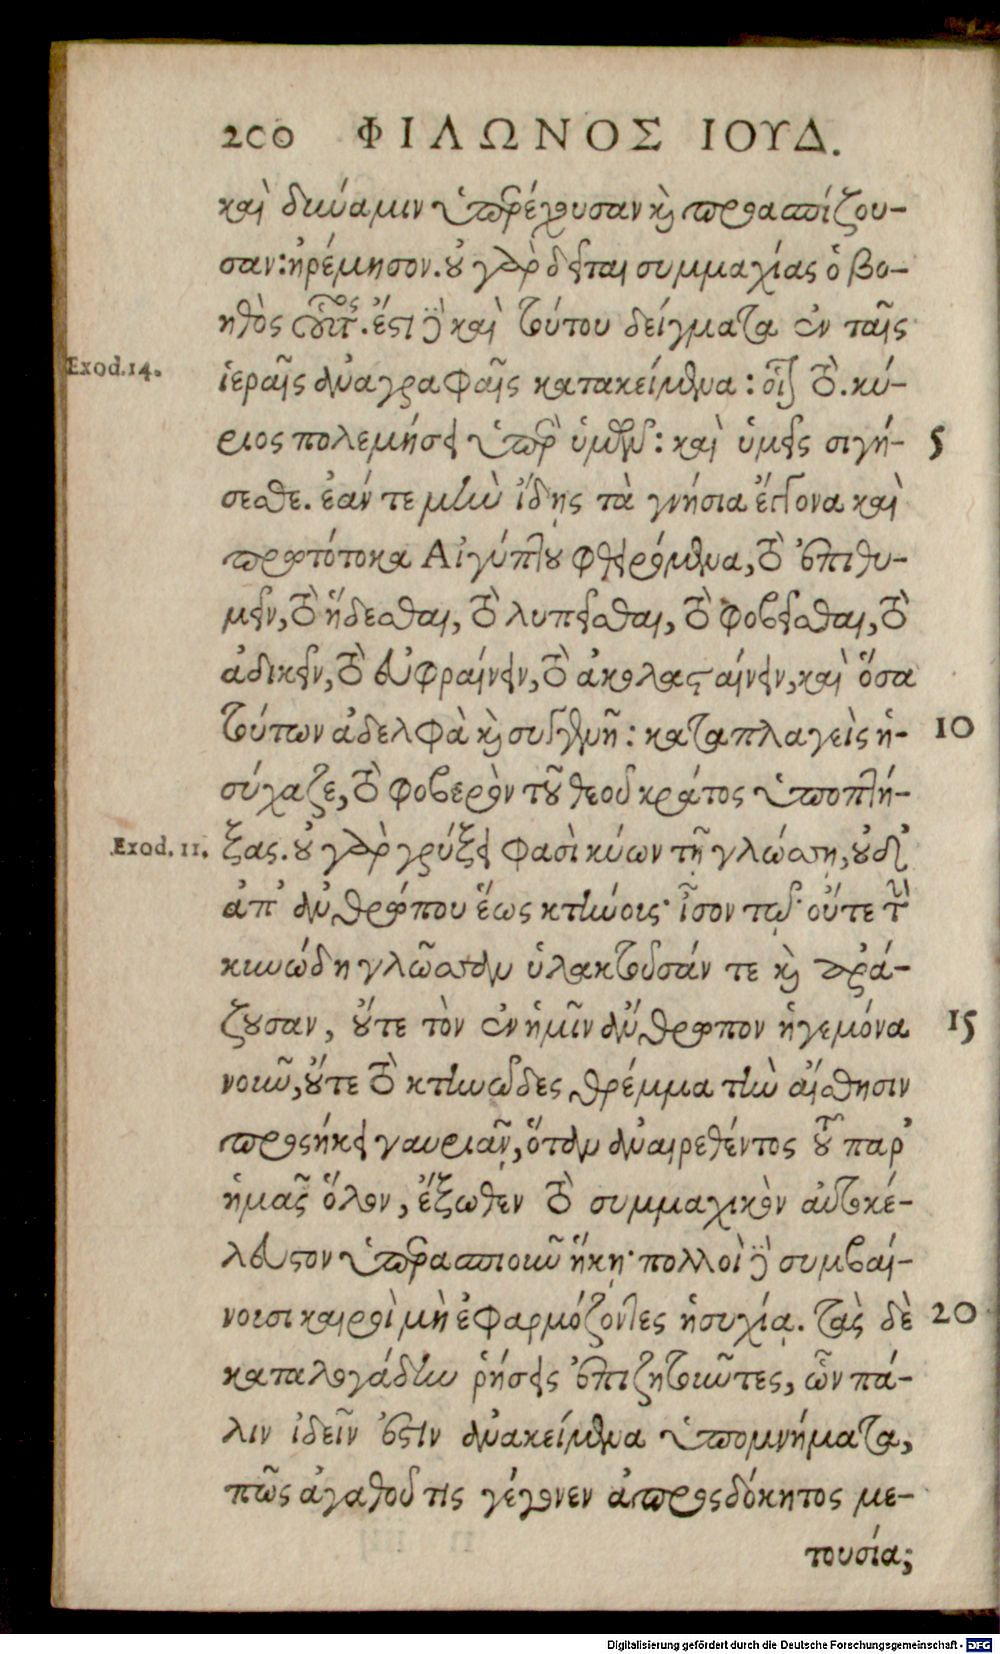 200 ΦΙΛΩΝΟΣ ΙΟΥΔ.
καὶ δύναμιν ὑπερέχουσαν καὶ προασπίζου-
σαν: ἠρέμησον. οὐ γὰρ δεῖται συμμαχίας ὁ βο-
ηθὸς οὗτος. ἔστι δὲ καὶ τούτου δείγματα ἐν ταῖς
Exod.14. ἱεραῖς ἀναγραφαῖς κατακείμενα: οἷον τὸ. κύ-
ριος πολεμήσει ὑπὲρ ὑμῶν: καὶ ὑμεῖς σιγή- 5
σεσθε. ἐάν τε μὴν ἴδῃς τὰ γνήσια ἔγγονα καὶ
πρωτότοκα Αἰγύπτου φθειρόμενα, τὸ ἐπιθυ-
μεῖν, τὸ ἥδεσθαι, τὸ λυπεῖσθαι, τὸ φοβεῖσθαι, τὸ
ἀδικεῖν, τὸ εὐφραίνειν, τὸ ἀκολασταίνειν, καὶ ὅσα
τούτων ἀδελφὰ καὶ συγγενῆ: καταπλαγεὶς ἡ- 10
σύχαζε, τὸ φοβερὸν τοῦ θεοῦ κράτος ὑποπτή-
Exod. 11. ξας. οὐ γὰρ γρύξει φασὶ κύων τῇ γλώσσῃ, οὐδὲ
ἀπ' ἀνθρώπου ἕως κτήνους· ἴσον τῷ· οὔτε τὴν
κυνώδη γλῶσσαν ὑλακτοῦσάν τε καὶ κρά-
ζουσαν, οὔτε τὸν ἐν ἡμῖν ἄνθρωπον ἡγεμόνα 15
νοῦν, οὔτε τὸ κτηνῶδες θρέμμα τὴν αἴσθησιν
προσήκει γαυριᾶν, ὅταν ἀναιρεθέντος τοῦ παρ'
ἡμᾶς ὅλον, ἔξωθεν τὸ συμμαχικὸν αὐτοκέ-
λευστον ὑπερασπιοῦν ἥκῃ· πολλοὶ δὲ συμβαί-
νουσι καιροὶ μὴ ἐφαρμόζοντες ἡσυχίᾳ. τὰς δὲ 20
καταλογάδην ῥήσεις ἐπιζητοῦντες, ὧν πά-
λιν ἰδεῖν ἔστιν ἀνακείμενα ὑπομνήματα,
πῶς ἀγαθοῦ τις γέγονεν ἀπροσδόκητος με-
τουσία;
Digitalisierung gefördert durch die Deutsche Forschungsgemeinschaft - DFG